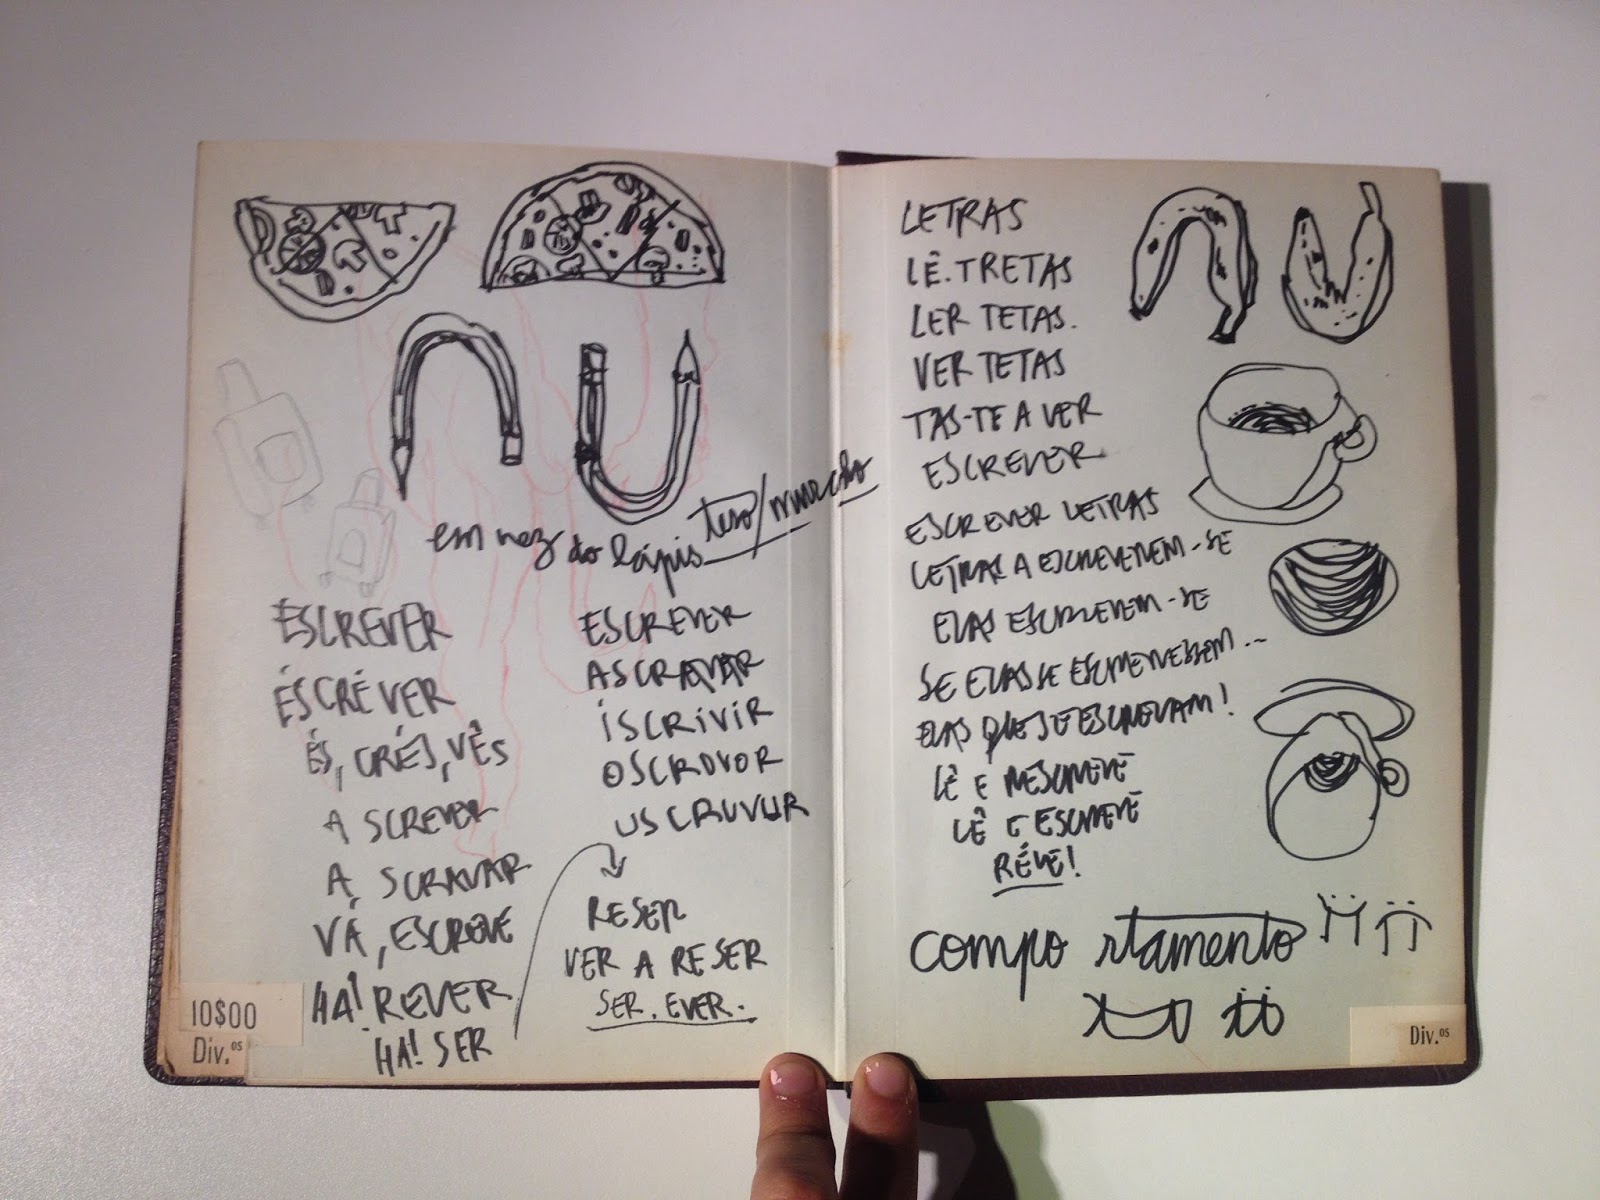 em vez do lápis teso/murcho
ESCREVER
ÉSCRÉVER
ÉS, CRÊS, VÊS
A SCREVER
A SCRAVAR
VÁ, ESCREVE
HA! REVER
HA! SER
ESCREVER
ASCRAVAR
ISCRIVIR
OSCROVOR
USCRUVUR
RESER
VER A RESER
SER. EVER.
10$00
Div.os
LETRAS
LÊ. TRETAS
LER TETAS.
VER TETAS
TAS-TE A VER
ESCREVER
ESCREVER LETRAS
LETRAS A ESCREVEREM-SE
ELAS ESCREVEM-SE
SE ELAS SE ESCREVESSEM...
ELAS QUE SE ESCREVAM!
LÊ E RESCREVE
LÊ E ESCREVE
RÊVE!
compo rtamento
Div.os